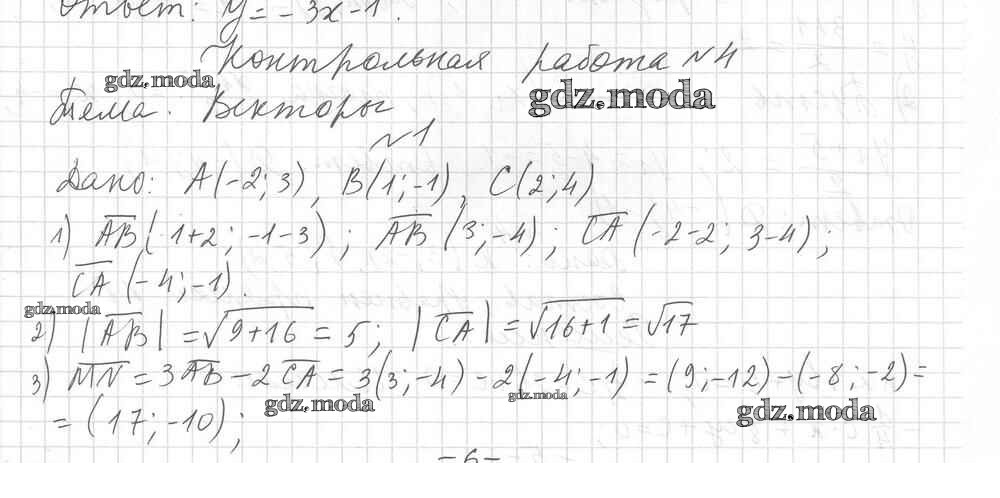 Ответ: y = -3x-1.
Контрольная работа №4
gdz.moda
gdz.moda
Тема. Векторы
№1
Дано: A(-2; 3), B(1; -1), C(2; 4)
1) AB(1+2; -1-3); AB(3; -4); CA(-2-2; 3-4);
CA(-4; -1).
gdz.moda
2) |AB| = √9+16 = 5; |CA| = √16+1 = √17
3) MN = 3AB - 2CA = 3(3; -4) - 2(-4; -1) = (9; -12) - (-8; -2) =
gdz.moda
gdz.moda
gdz.moda
= (17; -10);
- 6 -